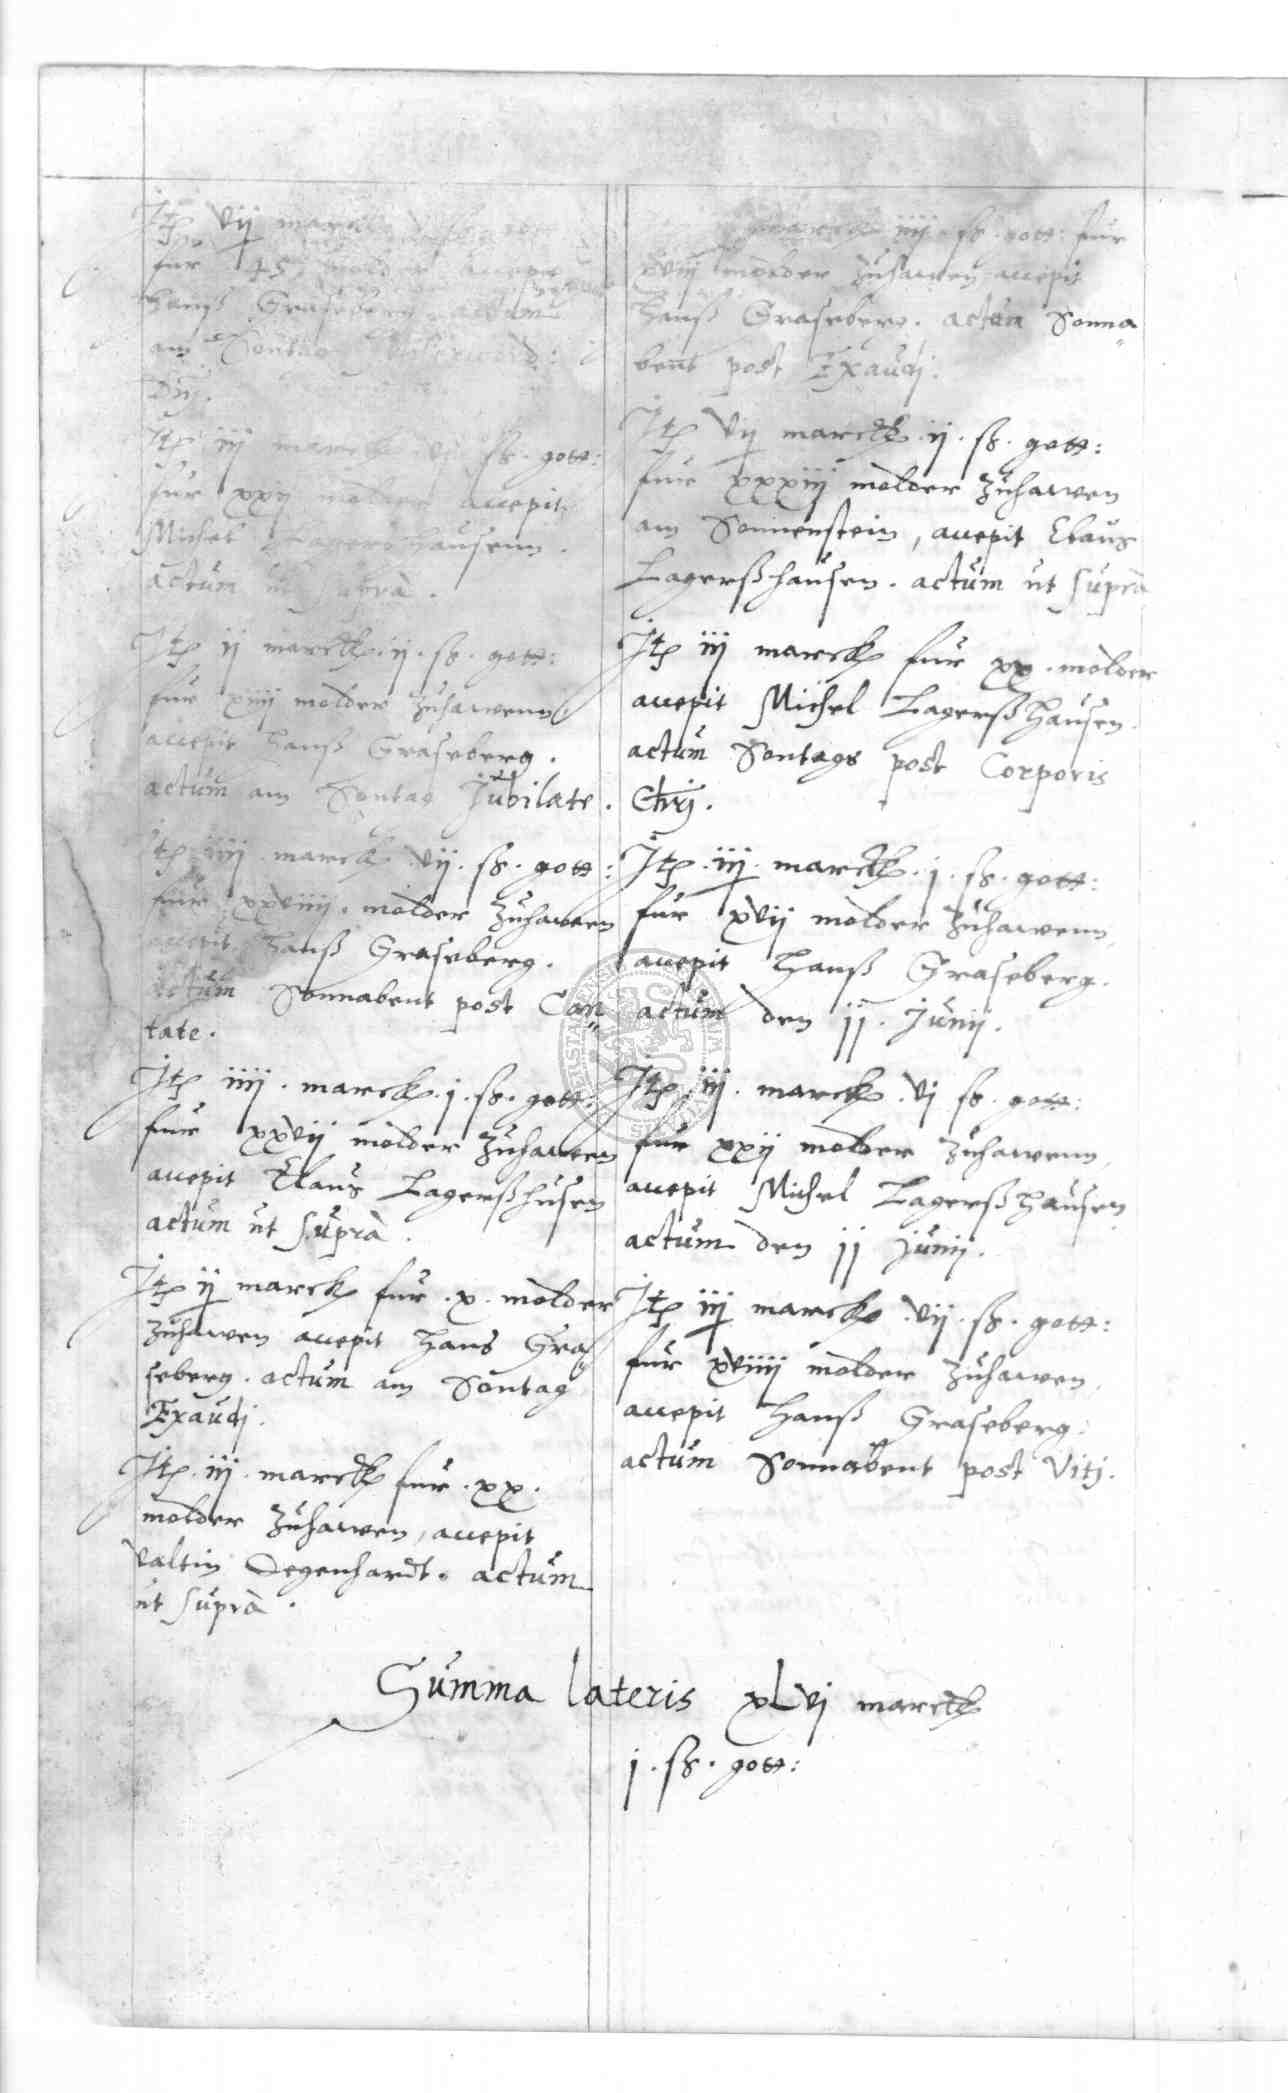 Itp vij marck
fur 45 molder accepit
Hanß Graseberg actum
am Sontag
Dnj.
Itp iij marck vj ß. gott:
fur xxij molder accepit
Michel Lagershausenn.
actum ut supra.
Itp ij marck. ij. ß. gott:
fur xiiij molder zuhawenn
accepit Hanß Graseberg.
actum am Sontag Jubilate.
Itp iiij marck vij. ß. gott:
fur xxviiij. molder zuhawen
accepit Hanß Graseberg.
actum Sonnabent post Can„
tate.
Itp iiij. marck. j. ß. gott:
fur xxvij molder zuhawen
accepit Claus Lagerßhusen
actum ut supra.
Itp ij marck fur .x. molder
zuhawen accepit Hans Gra
seberg. actum am Sontag
Exaudj.
Itp. iij. marck fur .xx.
molder zuhawen, accepit
Valtin Degenhardt. actum
ut supra.
marck iiij. ß. gott: fur
xviij molder zuhawen accepit
Hanß Graseberg. actum Sonna„
bent post Exaudj.
Itp vij marck. ij. ß. gott:
fur xxxiij molder zuhawen
am Sonnenstein, accepit Claus
Lagerßhausen. actum ut supra
Itp iij marck fur xx. molder
accepit Michel Lagerßhausen.
actum Sontags post Corporis
Chrj.
Itp .iij. marck. j. ß. gott:
fur xvij molder zuhawenn,
accepit Hanß Graseberg.
actum den jj. Junij.
Itp iij. marck. vj ß. gott:
fur xxij molder zuhawenn,
accepit Michel Lagerßhausen
actum den jj Junij.
Itp iij marck vij. ß. gott:
fur xviiij molder zuhawen,
accepit Hanß Graseberg:
actum Sonnabent post Vitj.
Summa lateris xLvj marck
j. ß. gott: